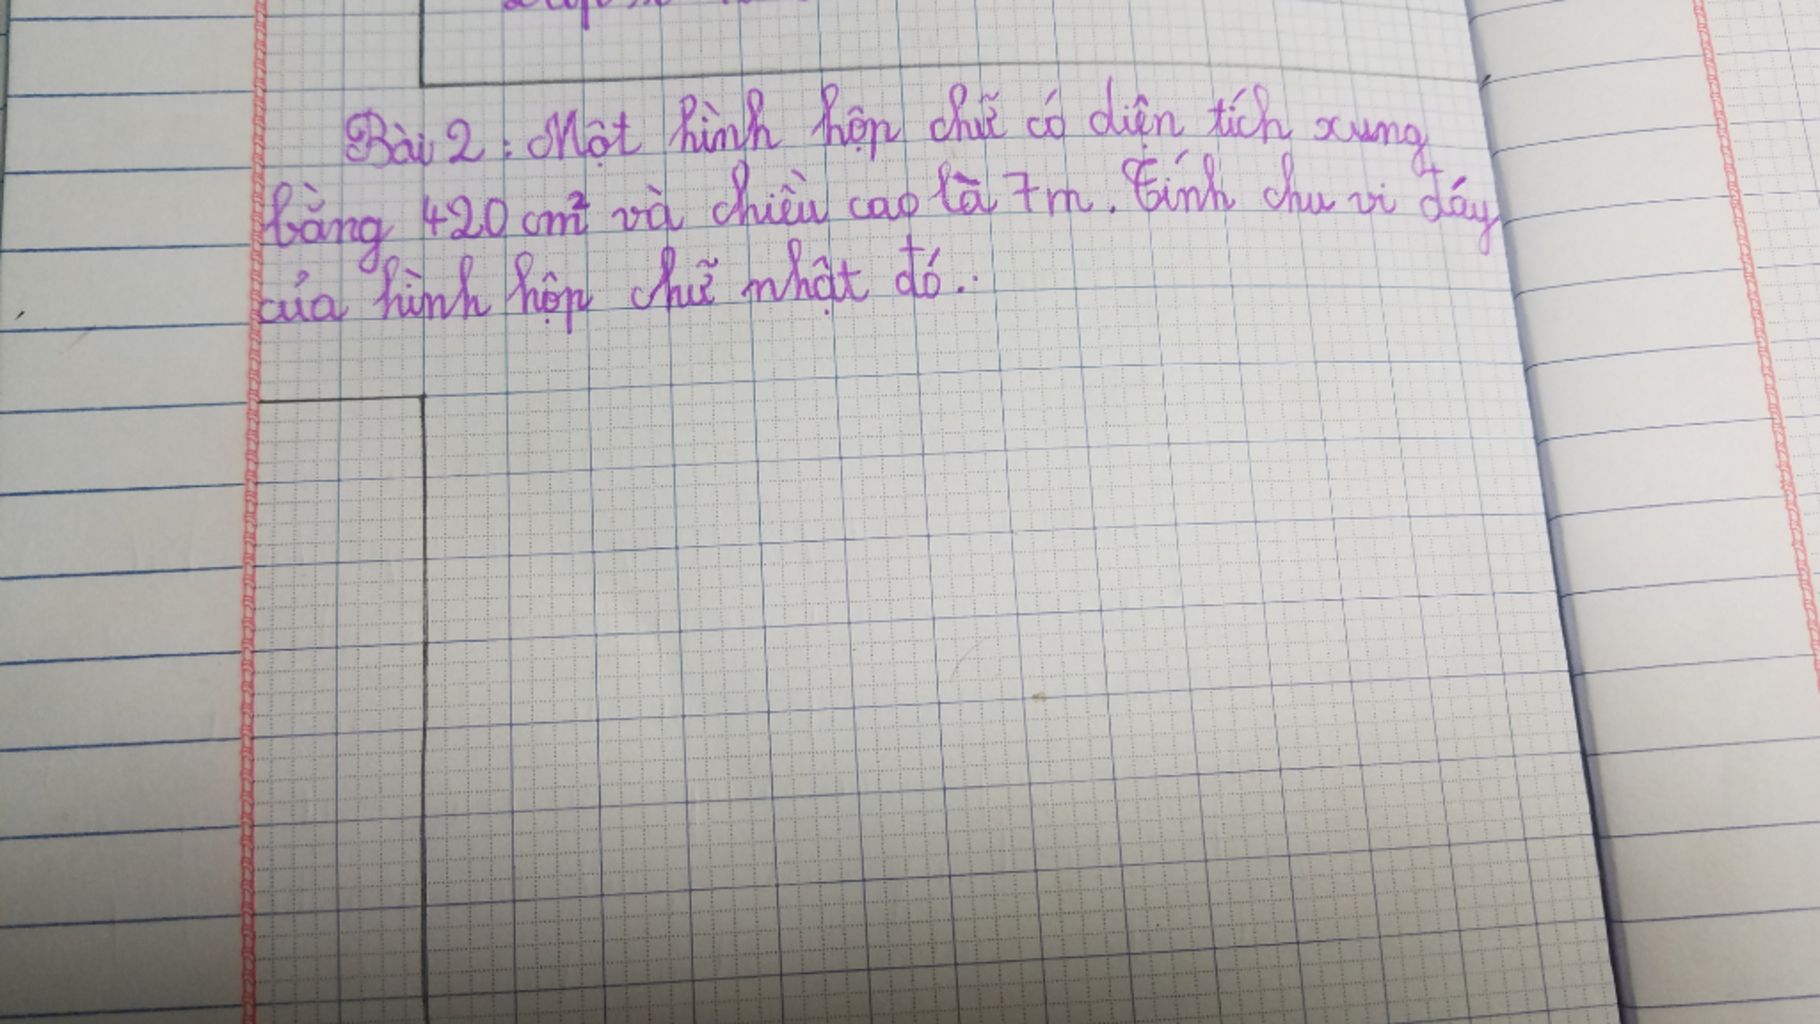 Bài 2: Một hình hộp chữ có diện tích xung
bằng 420 cm² và chiều cao là 7m. Tính chu vi đáy
của hình hộp chữ nhật đó.